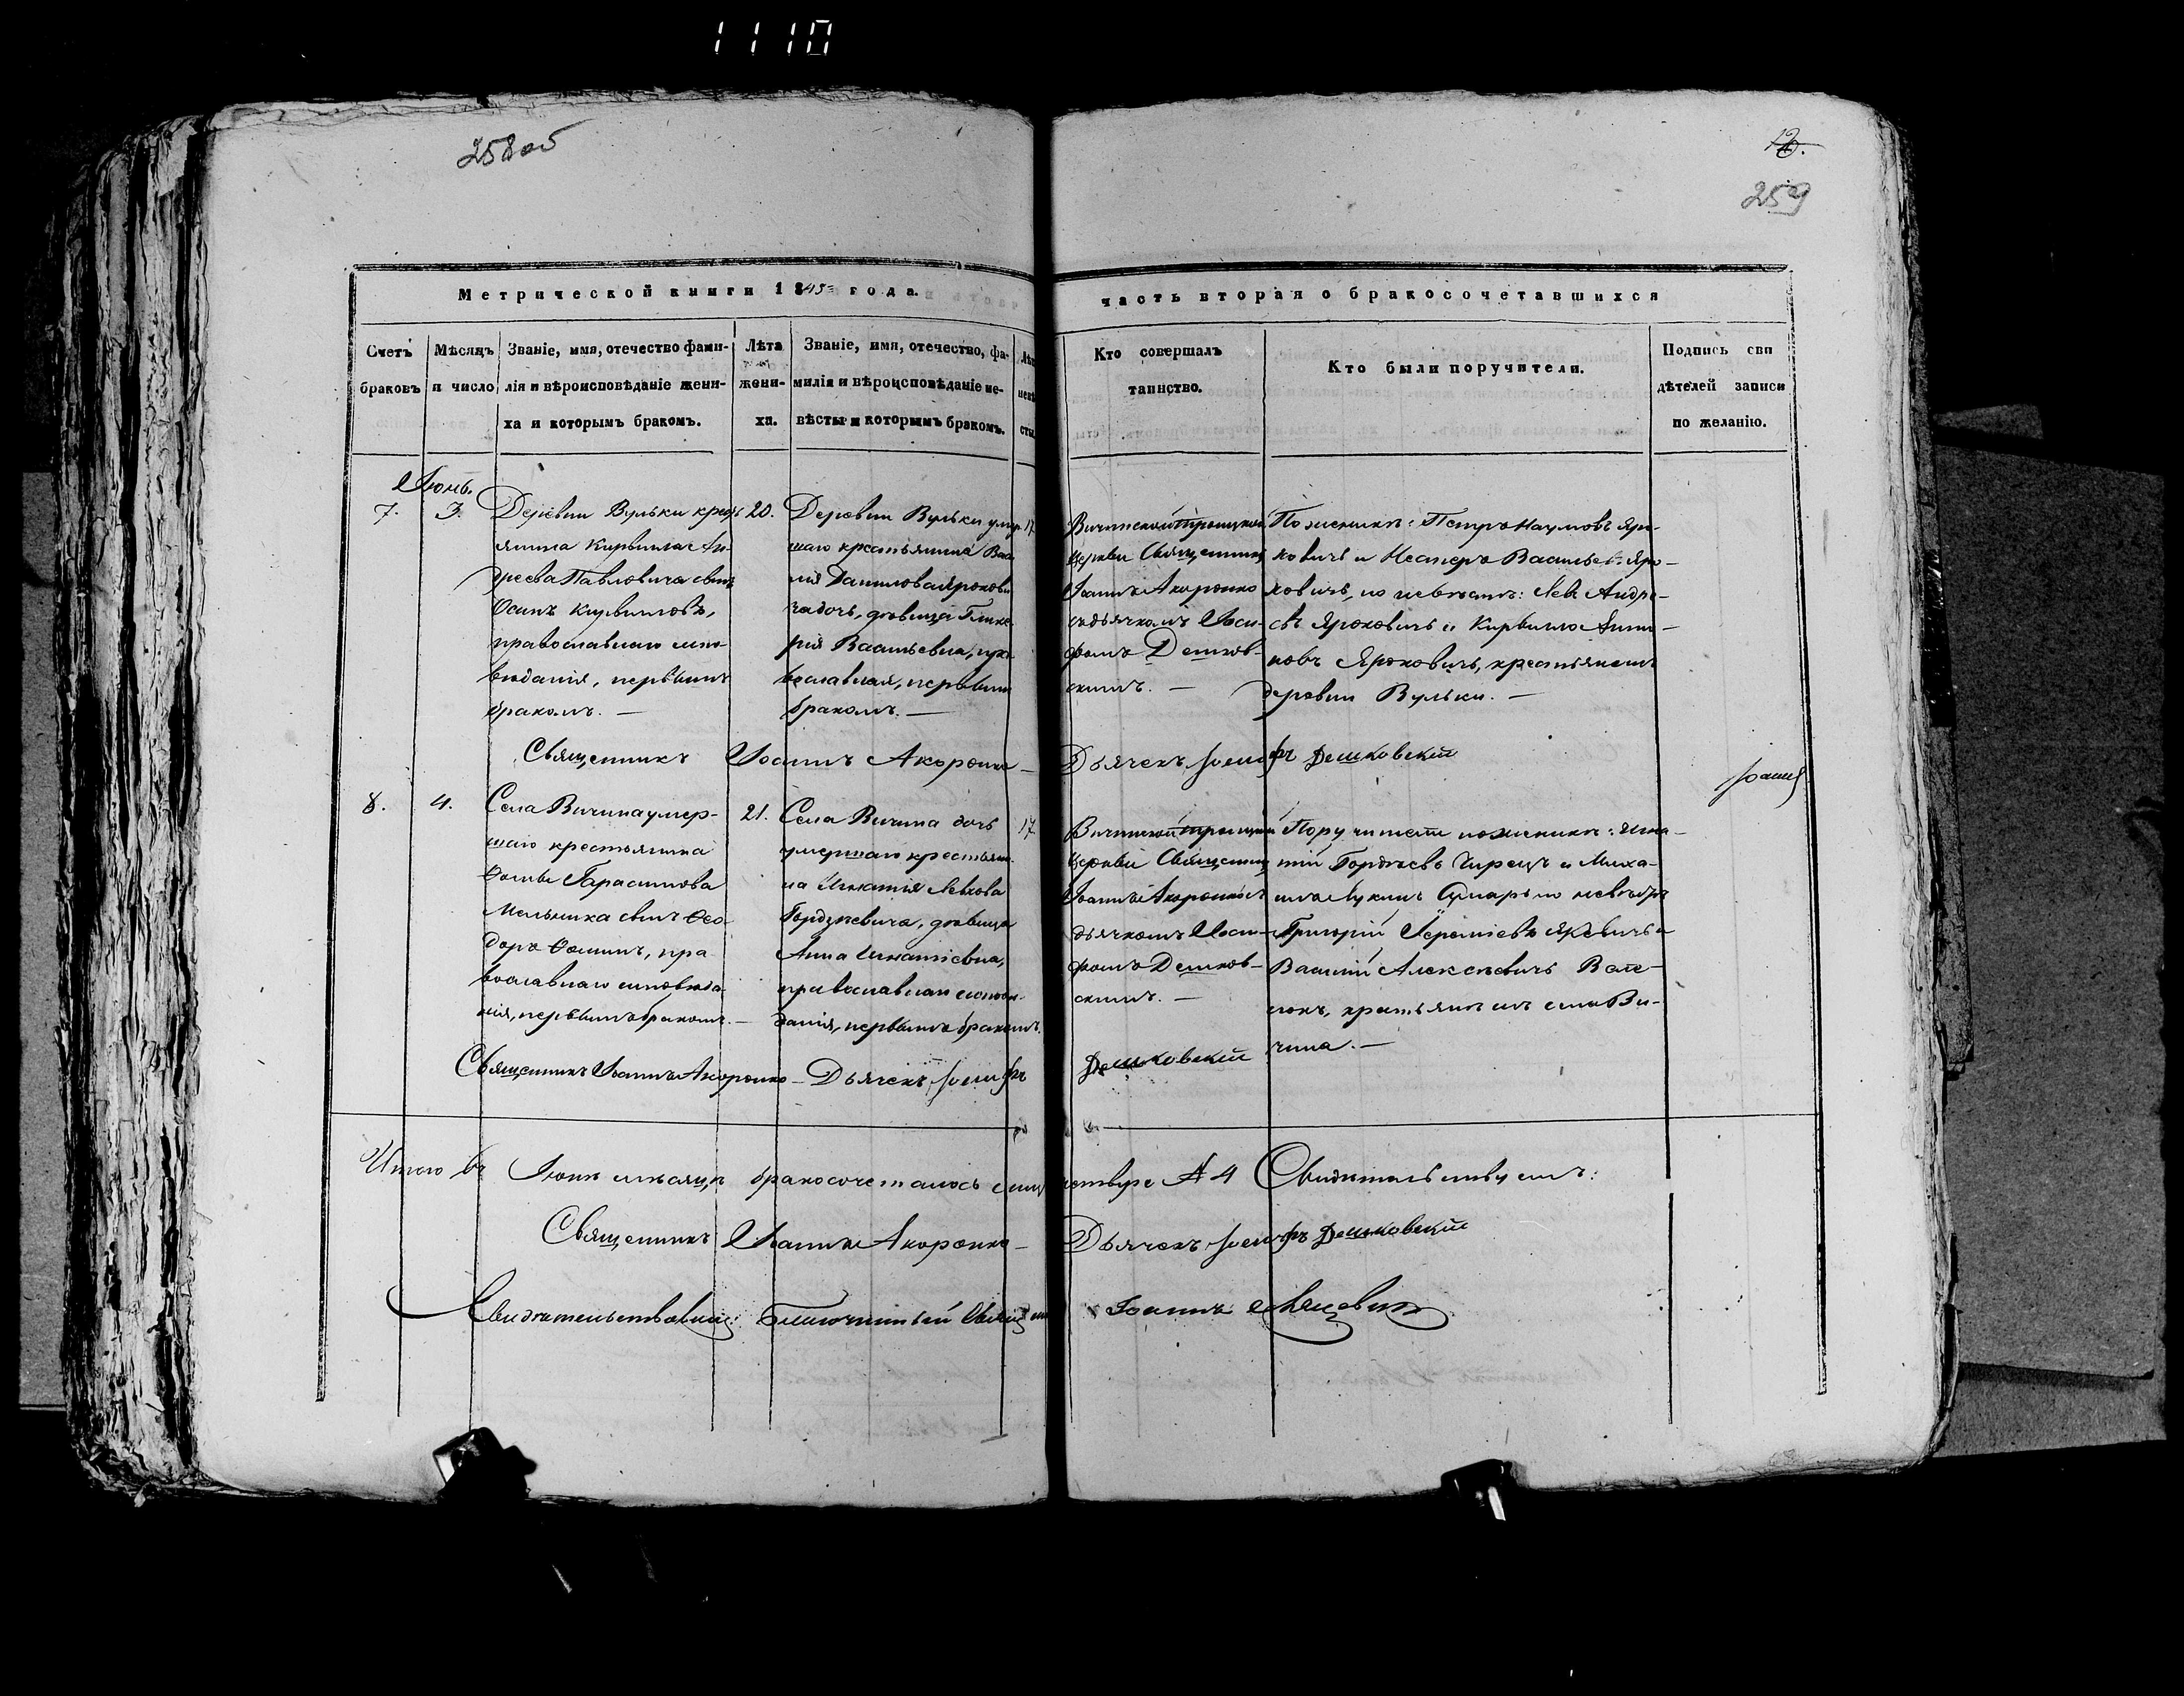 1110
258 об
12.
259
Метрической книги 1845 года.
часть вторая о бракосочетавшихся
Счетъ браковъ
Мѣсяцъ и число
Званіе, имя, отечество фами-
лія и вѣроисповѣданіе жени-
ха и которымъ бракомъ.
Лѣта
жени-
ха.
Званіе, имя, отечество, фа-
милія и вѣроисповѣданіе не-
вѣсты и которымъ бракомъ.
Лѣт
невѣ
сты
Кто совершалъ
таинство.
Кто были поручители.
Подпись сви
дѣтелей записи
по желанію.
Іюнь.
7.
3.
Деревни Вульки кресть
янина Кирилла Ан-
дреева Павловича сынъ
Осипъ Кирилловъ,
православнаго испо-
вѣданія, первымъ
бракомъ. —
20.
Деревни Вульки умер
шаго крестьянина Васи
лія Данилова Яркови
ча дочь, дѣвица Глике
рія Васильевна, пра
вославная, первымъ
бракомъ. —
17
Вичинской Троицкой
Церкви Священникъ
Іоаннъ Акоронко
съ дьячкомъ Іоси-
фомъ Дешков-
скимъ. —
По женихѣ: Петръ Наумовъ Яро-
ковичъ и Нестеръ Васильевъ Яро-
ковичъ, по невѣстѣ: Левъ Андре-
евъ Яроковичъ и Кириллъ
новъ Яроковичъ, крестьяне
деревни Вульки. —
Священникъ Іоаннъ Акоронко —
Дьячекъ Іосифъ Дешковскій
8.
4.
Села Вичина умер-
шаго крестьянина
Ѳомы Гарасимова
Мельника сынъ Ѳео-
доръ Ѳоминъ, пра-
вославнаго исповѣда-
нія, первымъ бракомъ. —
21.
Села Вичина дочь
умершаго крестьяни-
на Игнатія Левкова
Гордзѣевича, дѣвица
Анна Игнатіевна,
православнаго исповѣ-
данія, первымъ бракомъ.
17.
Вичинской Троицкой
Церкви Священникъ
Іоаннъ Акоронко съ
дьячкомъ Іоси-
фомъ Дешков-
скимъ. —
Поручители по женихѣ: Игна-
тій Гордѣевъ Чирецъ и Миха-
илъ Лукинъ по невѣстѣ
Григорій Яковичъ и
Василій Алексѣевичъ
крестьяне села Ви-
чина. —
Іоаннъ
Священникъ Іоаннъ Акоронко — Дьячекъ Іосифъ Дешковскій
Итого въ Іюнѣ мѣсяцѣ бракосочеталось четверо 4 Свидѣтельствуемъ:
Священникъ Іоаннъ Акоронко — Дьячекъ Іосифъ Дешковскій
Свидѣтельствовалъ: Благочинный Священ Іоаннъ